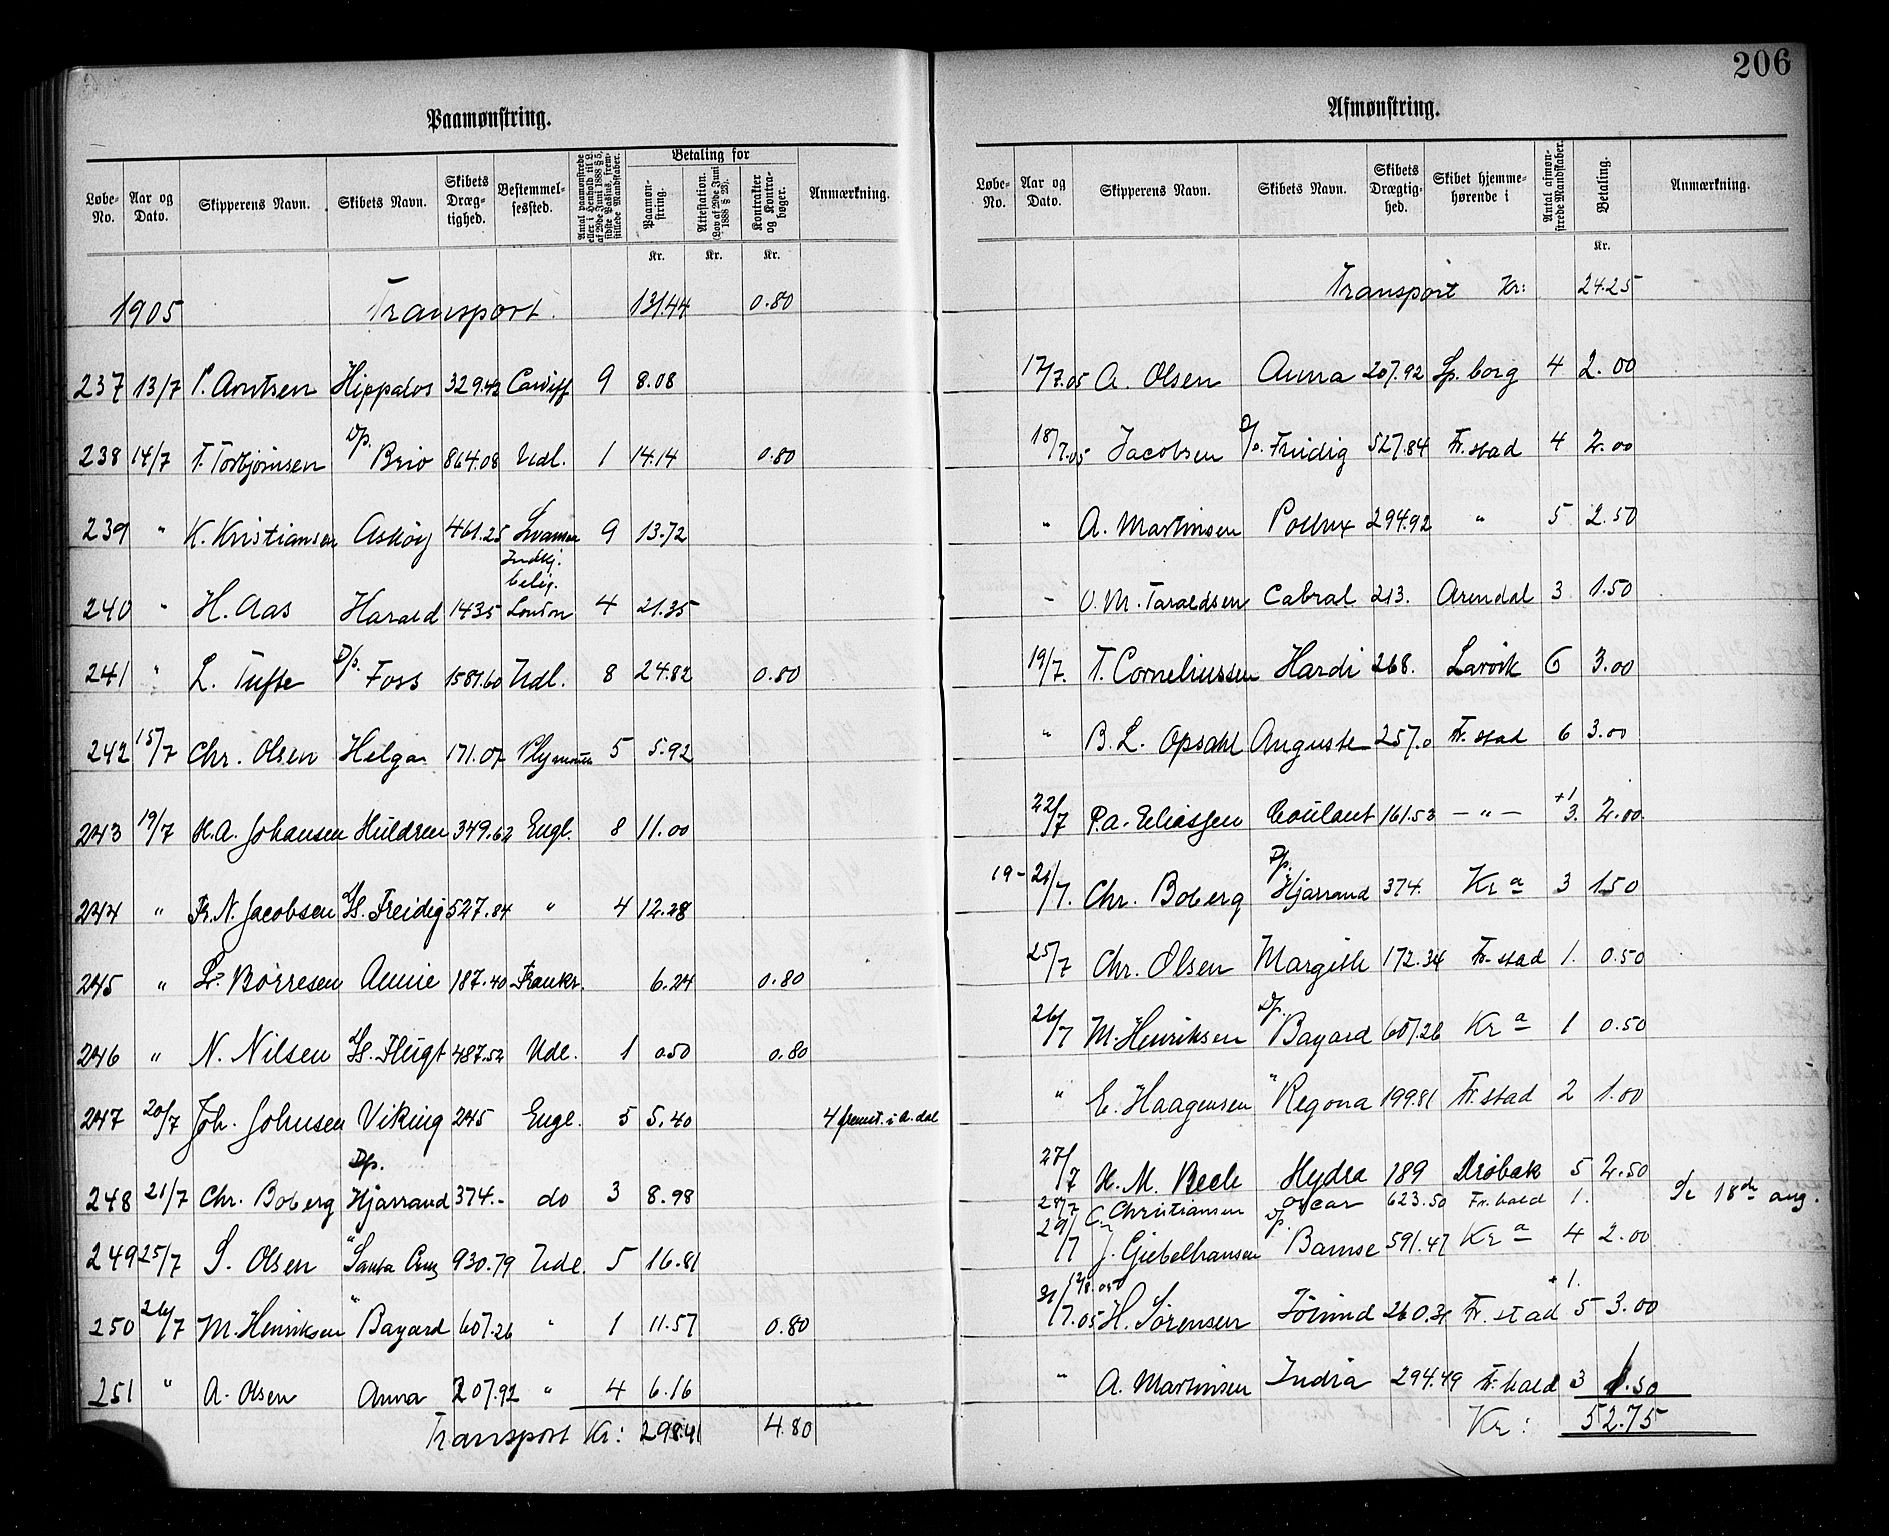 206
Paamønstring.
Løbe-No. Aar og Dato. Skipperens Navn. Skibets Navn. Skibets Dræg-tighed. Bestemmel-sessted. Betaling for Paamøn-string. Attestation. (Lov af 29de Juni 1888 § 23). Kontrakter og Kontra-bøger. Anmærkning.
Kr. Kr. Kr.
1905 Transport. 131.44 0.80
237 13/7 P. Arntsen Hippalos 329.42 Cardiff 9 8.08
238 14/7 T. Torbjørnsen D/p. Brio 864.08 Udl. 1 14.14 0.80
239 " K. Kristiansen Askøy 461.25 9 13.72
240 " H. Aas Harald 1435 London 4 21.35
241 " L. Tufte D/p. Foss 1581.60 Udl. 8 24.82 0.80
242 15/7 Chr. Olsen Helga 171.07 Plymouth 5 5.92
243 19/7 H.A. Johansen Huldren 349.62 Engl. 8 11.00
244 " Fr. N. Jacobsen Freidig 527.84 " 4 12.28
245 " Børresen Annie 187.40 Frankr. 6.24 0.80
246 " N. Nilsen Flügt 487.52 Udl. 1 0.50 0.80
247 20/7 Joh. Johnsen Viking 245 Engl. 5 5.40 4 fremst. i A.dal
248 21/7 Chr. Boberg Dp. Hjarrand 374.- do 3 8.98
249 25/7 S. Olsen " Santa Cruz 930.79 Udl. 5 16.81
250 26/7 M. Henriksen " Bayard 607.26 " 1 11.57 0.80
251 " A. Olsen Anna 207.92 " 4 6.16
Transport Kr: 298.41 4.80
Afmønstring.
Løbe-No. Aar og Dato. Skipperens Navn. Skibets Navn. Skibets Drægtig-hed. Skibet hjemme-hørende i Antal afmøn-strede Mandskaber. Betaling. Anmærkning.
Kr.
Transport Kr: 24.25
17/7.05 A. Olsen Anna 207.92 Sp.borg 4 2.00
18/7.05 Jacobsen D/p. Freidig 527.84 Fr.stad 4 2.00
" A. Martinsen Pollux 294.92 " 5 2.50
" O. M. Taraldsen Cabral 213. Arendal 3 1.50
19/7. T. Corneliussen Hardi 268. Larvik 6 3.00
" B. L. Opsahl Auguste 257.0 Fr.stad 6 3.00
22/7 P.A. Eliassen Coulant 161.53 — " — +1 3. 2.00.
19- 21/7. Chr. Boberg Dp. Hjarrand 374. Kr a 3 1.50
25/7 Chr. Olsen Margith 172.34 Fr.stad 1. 0.50
26/7 M. Henriksen Dp. Bayard 607.26 Kr a 1 0.50
" E. Haagensen " Regona 199.81 Fr.stad 2 1.00
27/7 H. M. Hydra 189 Drøbak 5 2.50
28/7 C. Christiansen Oscar 623.50 Fr.hald 1. Se 18de aug.
29/7 J. Giebelhausen Dp. Bamse 591.47 Kr a 4 2.00
31/7.05 H. Sørensen 260.31 Fr.stad +1. 5 3.00
" A. Martinsen India 294.49 Fr.hald 3 1.50
Kr: 52.75